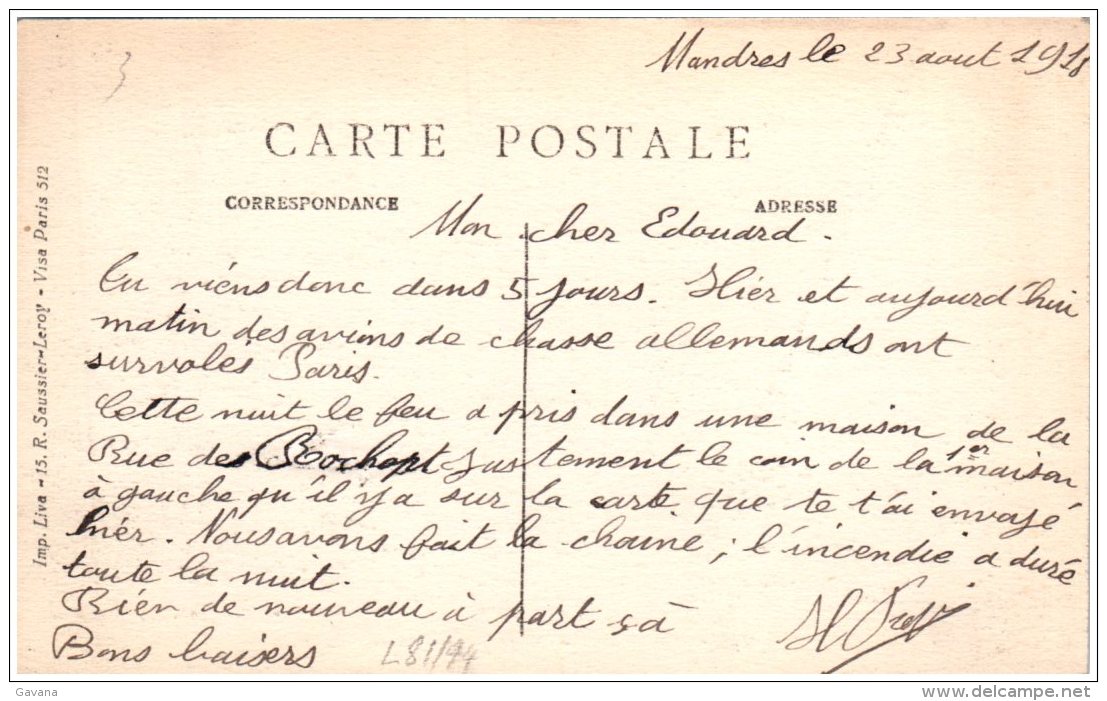 3
Mandres le 23 aout 1918
CARTE POSTALE
CORRESPONDANCE
ADRESSE
Mon cher Edouard.
Tu viens donc dans 5 jours. Hier et aujourd'hui
matin des avions de chasse allemands ont
survolés Paris.
Cette nuit le feu a pris dans une maison de la
Rue des justement le coin de la 1er maison
à gauche qu'il y a sur la carte que te t'ai envoyé
hier. Nous avons fait la chaine; l'incendie a duré
toute la nuit.
Rien de nouveau à part sà
Bons baisers
L81/94
Imp. Liva - 15. R. Saussier-Leroy - Visa Paris 512
Gavana
www.delcampe.net